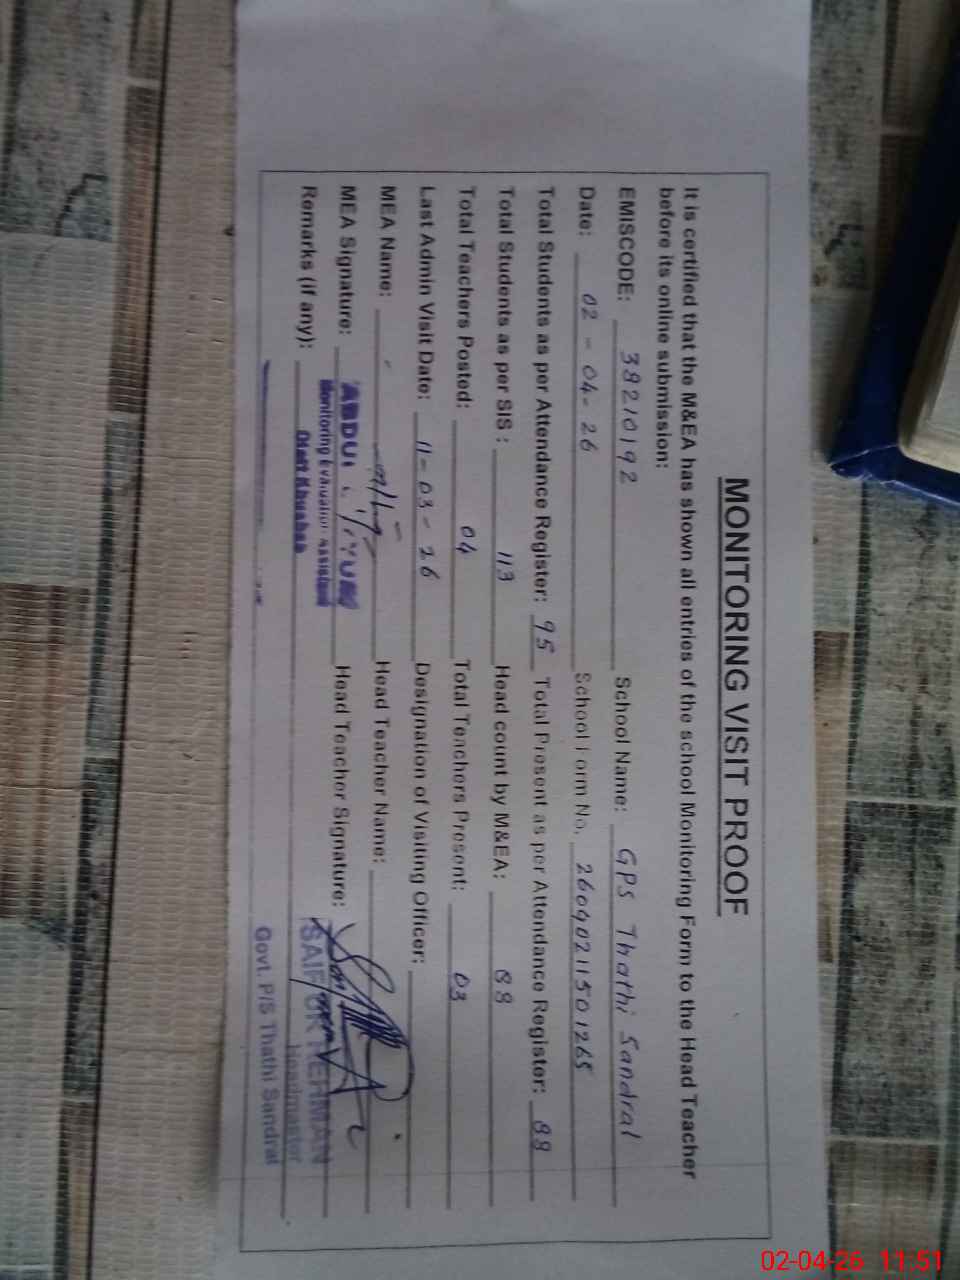 MONITORING VISIT PROOF
It is certified that the M&EA has shown all entries of the school Monitoring Form to the Head Teacher
before its online submission:
EMISCODE: 38210192 School Name: GPS Thathi Sandral
Date: 02-04-26 School Form No. 26040211501265
Total Students as per Attendance Register: 95 Total Present as per Attendance Register: 88
Total Students as per SIS: 113 Head count by M&EA: 88
Total Teachers Posted: 04 Total Teachers Present: 03
Last Admin Visit Date: 11-03-26 Designation of Visiting Officer:
MEA Name: Head Teacher Name:
MEA Signature: Head Teacher Signature:
ABDUL
Monitoring Evaluation Assistant
Remarks (if any): Distt Khushab
SAIF UR REHMAN
Headmaster
Govt. P/S Thathi Sandral
02-04-26 11:51